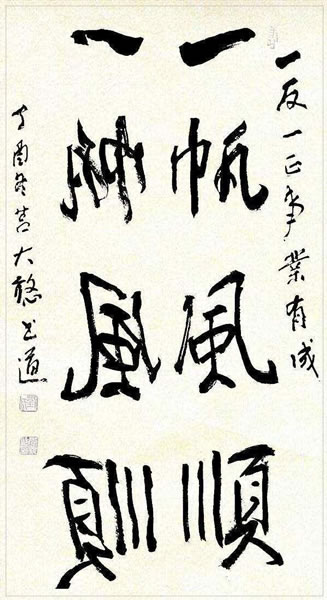 一反一正事業有成
一帆風順
一帆風順
丁酉冬吉大书道